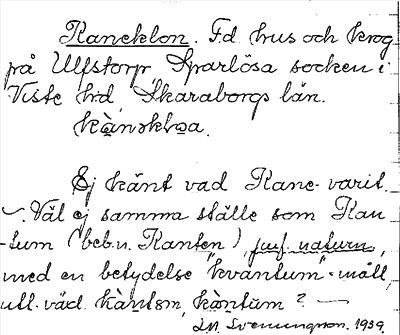 Kaneklon. F.d. hus och krog
på Ulfstorp Sparlösa socken i
Viste hd, Skaraborgs län.
kà̀nəkloa.
Ej känt vad Kane- varit.
Väl ej samma ställe som Kan-
-tum (beb.n. Kanten), jmf. naturn,
med en betydelse "kvantum"-mått,
utt. växl. kàntəm, kàntum? —
Svenungson. 1939.